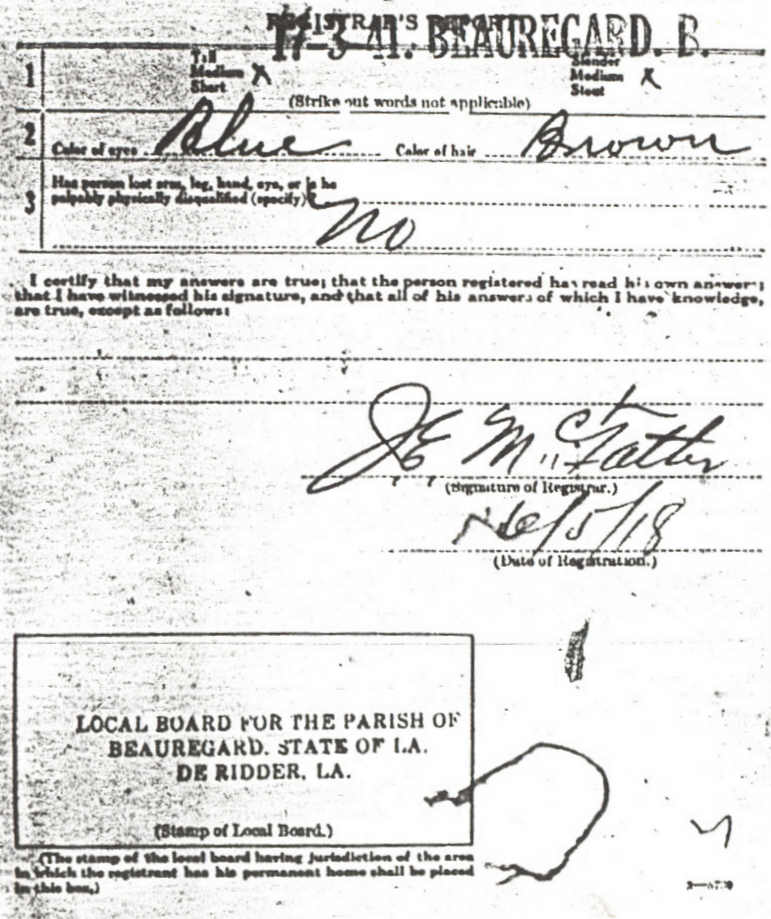 REGISTRAR'S REPORT
17-3-41. BEAUREGARD. B.
1 Tall Medium Short X Slender Medium Stout X
(Strike out words not applicable)
2 Color of eyes Blue Color of hair Brown
3 Has person lost arm, leg, hand, eye, or is he
palpably physically disqualified (specify)? No
I certify that my answers are true; that the person registered has read his own answers;
that I have witnessed his signature, and that all of his answers of which I have knowledge,
are true, except as follows:
J E McFatter
(Signature of Registrar.)
6/5/18
(Date of Registration.)
LOCAL BOARD FOR THE PARISH OF
BEAUREGARD. STATE OF LA.
DE RIDDER, LA.
(Stamp of Local Board.)
(The stamp of the local board having jurisdiction of the area
in which the registrant has his permanent home shall be placed
in this box.)